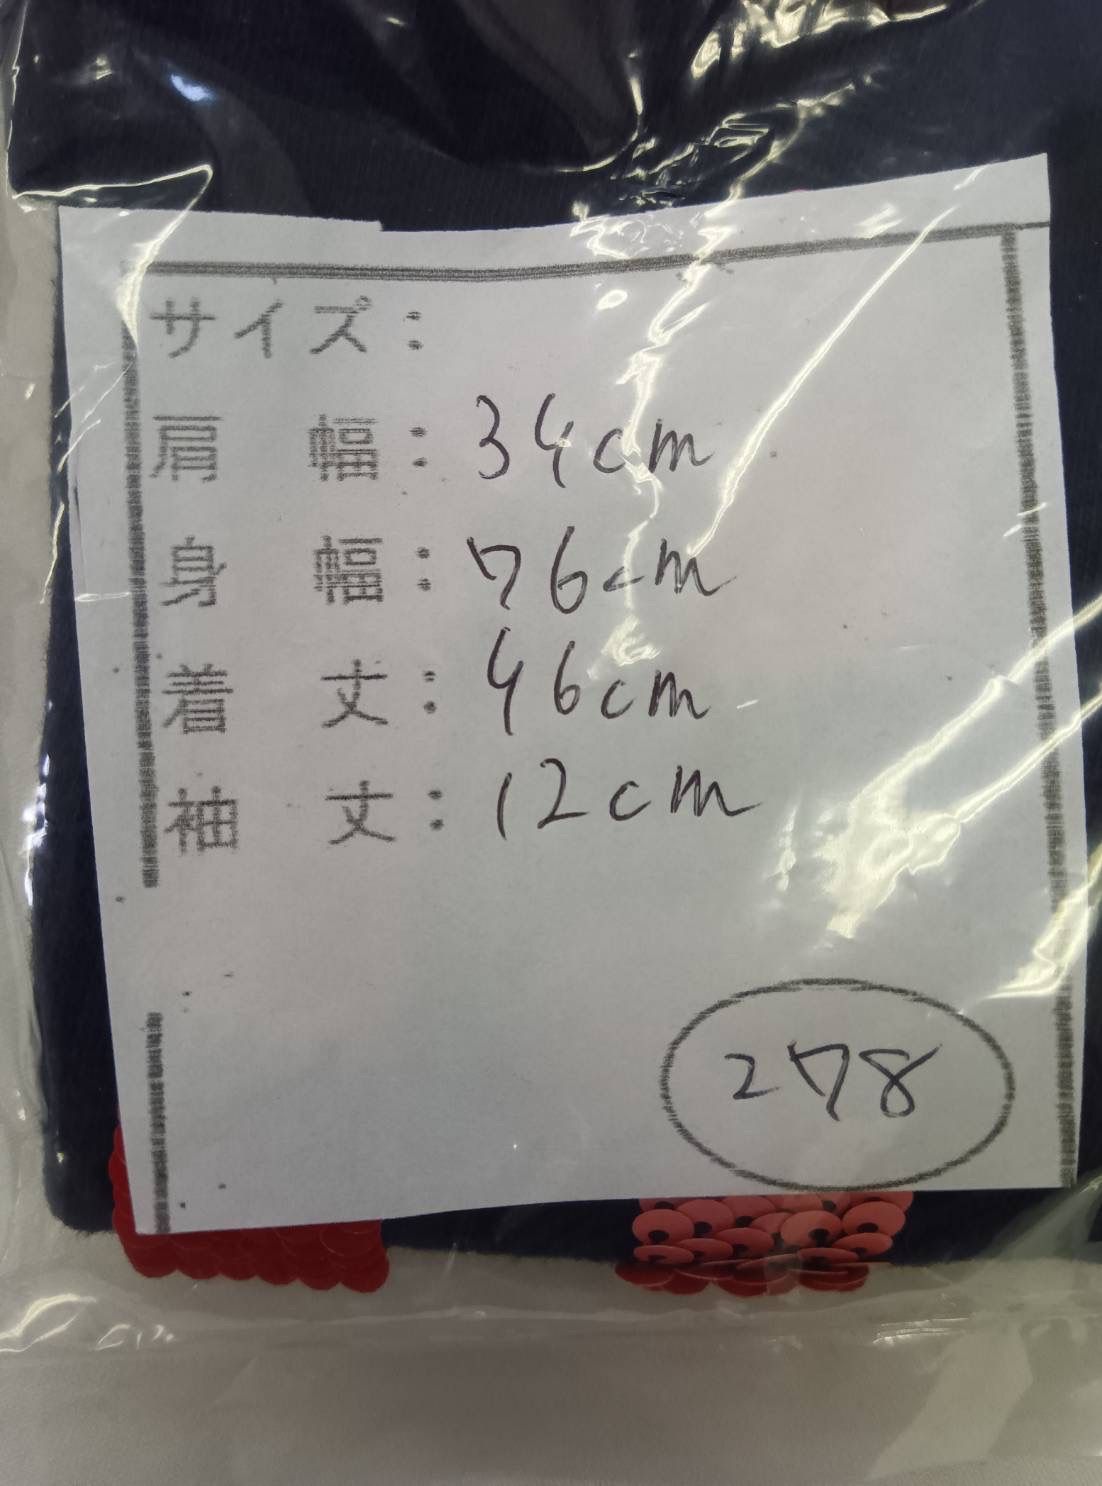 サイズ：
肩幅：34cm
身幅：76cm
着丈：46cm
袖丈：12cm
278